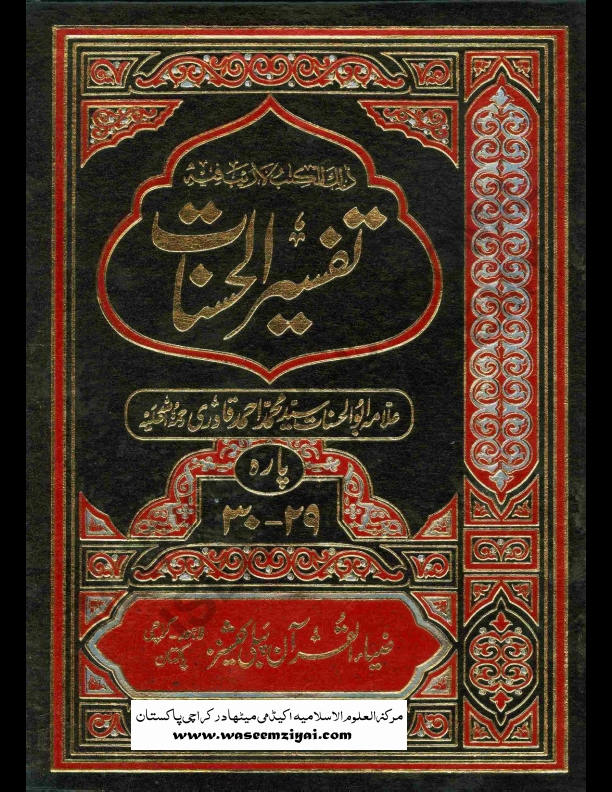 ذلك الكتب لا ريب فيه
تفسیر الحسنات
علامہ ابوالحسنات سید محمد احمد قادری رحمۃ اللہ علیہ
پارہ
۲۹-۳۰
ضیاء القرآن پبلی کیشنز
لاہور - کراچی
پاکستان
مرکز العلوم الاسلامیہ اکیڈمی میٹھادر کراچی پاکستان
www.waseemziyai.com